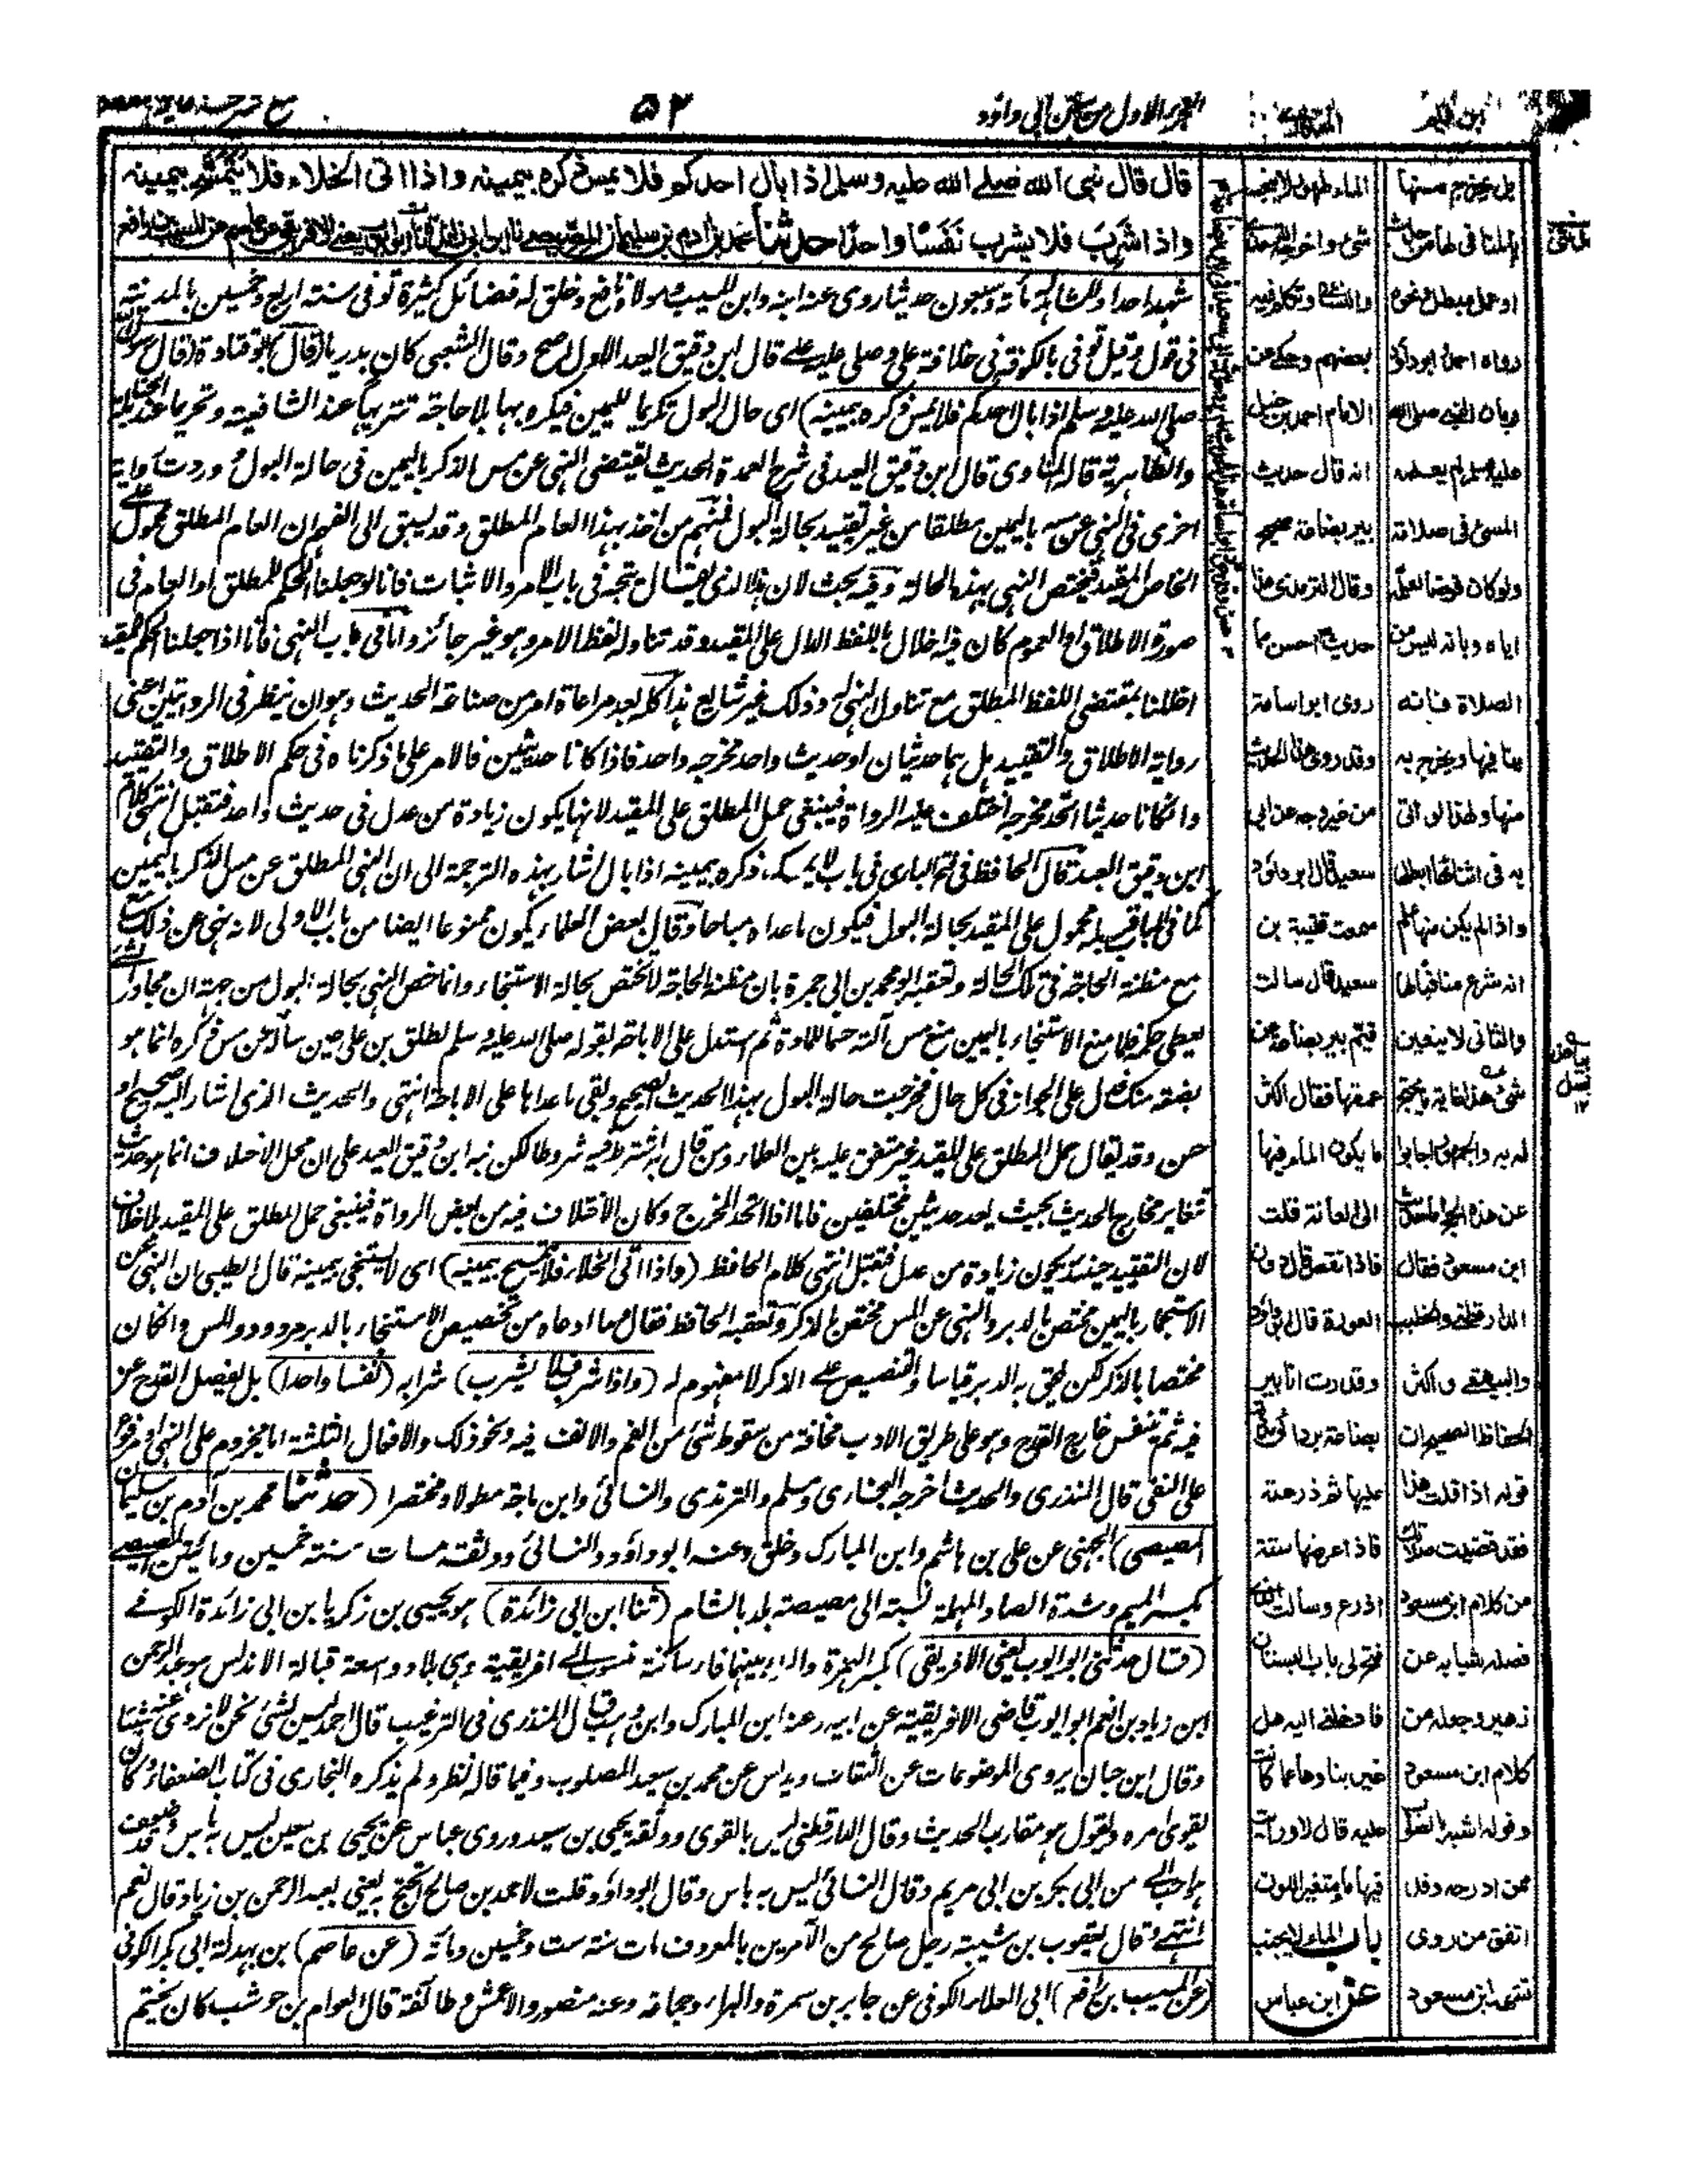 الجزء الاول من سنن ابى داؤد
۵۲
قال قال نبى الله صلے الله عليه وسلم اذا بال احدكم فلا يمس ذكره بيمينه واذا اتى الخلاء فلا يتمسح بيمينه
واذا شرب فلا يشرب نفسًا واحدًا حدثنا محمد بن ادم بن سليمان المصيصے نا ابن ابى زائدة
شهد احدا والمشاهد له مائة وسبعون حديثا روى عنه ابنه وابن المسيب ومولاه نافع وخلق له فضائل كثيرة توفى سنة اربع وخمسين بالمدينة
فى قول وقيل توفى بالكوفة فى خلافة على وصلى عليه على قال ابن دقيق العيد الاول اصح وقال الشعبى كان بدريا (قال) ابو قتادة (قال رسول الله
صلى الله عليه وسلم اذا بال احدكم فلا يمس ذكره بيمينه) اى حال البول تكريما لليمين فيكره بها بلا حاجة تنزيها عند الشافعية وتحريما عند الحنابلة
والظاهرية قاله المناوى قال ابن دقيق العيد فى شرح العمدة الحديث يقتضى النهى عن مس الذكر باليمين فى حالة البول ووردت رواية
اخرى فى النهى عن مسه باليمين مطلقا من غير تقييد بحالة البول فمنهم من اخذ بهذا العام المطلق وقد يسبق الى الفهم ان العام المطلق محمول على
الخاص المقيد فيختص النهى بهذه الحالة وفيه بحث لان هذا الذى يقال يتجه فى باب الامر والاثبات فانا لو جعلنا الحكم للمطلق او العام فى
صورة الاطلاق او العموم كان فيه اخلال باللفظ الدال على المقيد وقد تناوله لفظ الامر وهو غير جائز واما فى باب النهى فانا اذا جعلنا الحكم للمقيد
اخللنا بمقتضى اللفظ المطلق مع تناول النهى له وذلك غير شائع هذا كله بعد مراعاة امر من صناعة الحديث وهو ان ينظر فى الروايتين اعنى
رواية الاطلاق والتقييد هل هما حديثان او حديث واحد مخرجه واحد فاذا كانا حديثين فالامر على ما ذكرناه فى حكم الاطلاق والتقييد
وان كانا حديثا اتحد مخرجه اختلف عليه الرواة فينبغى حمل المطلق على المقيد لانها يكون زيادة من عدل فى حديث واحد فتقبل انتهى كلام
ابن دقيق العيد قال الحافظ فى فتح البارى فى باب لا يمسك ذكره بيمينه اذا بال اشار بهذه الترجمة الى ان النهى المطلق عن مس الذكر باليمين
كما فى الباب قبله محمول على المقيد بحالة البول فيكون ما عداه مباحا وقال بعض العلماء يكون ممنوعا ايضا من باب الاولى لانه نهى عن ذلك
مع مظنة الحاجة فى تلك الحالة وتعقبه ابو محمد بن ابى جمرة بان مظنة الحاجة لا تختص بحالة الاستنجاء وانما خص النهى بحالة البول من جهة ان مجاور الشئ
يعطى حكمه فلما منع الاستنجاء باليمين منع مس آلته حسما للمادة ثم استدل على الاباحة بقوله صلى الله عليه وسلم لطلق بن على حين سأله عن مس ذكره انما هو
بضعة منك فدل على الجواز فى كل حال فخرجت حالة البول بهذا الحديث الصحيح وبقى ما عداها على الاباحة انتهى والحديث الذى اشار اليه صحيح او
حسن وقد يقال حمل المطلق على المقيد غير متفق عليه بين العلماء ومن قال به اشترط فيه شروطا لكن نبه ابن دقيق العيد على ان محل الاختلاف انما هو حيث
تتغاير مخارج الحديث بحيث يعد حديثين مختلفين فاما اذا اتحد المخرج وكان الاختلاف فيه من بعض الرواة فينبغى حمل المطلق على المقيد بلا خلاف
لان التقييد حينئذ يكون زيادة من عدل فتقبل انتهى كلام الحافظ (واذا اتى الخلاء فلا يتمسح بيمينه) اى لا يستنجى بيمينه قال الطيبى ان النهى عن
الاستنجاء باليمين مختص بالدبر والنهى عن المس مختص بالذكر وتعقبه الحافظ فقال وما ادعاه من تخصيص الاستنجاء بالدبر مردود والمس وان كان
مختصا بالذكر لكن يلحق به الدبر قياسا والتنصيص على الذكر لا مفهوم له (واذا شرب فلا يشرب) شرابه (نفسا واحدا) بل يفصل القدح عن
فيه ثم يتنفس خارج القدح وهو على طريق الادب مخافة من سقوط شئ من الفم والانف فيه ونحو ذلك والافعال الثلثة اما مجزوم على النهى او مرفوع
على النفى قال المنذرى والحديث اخرجه البخارى ومسلم والترمذى والنسائى وابن ماجة مطولا ومختصرا (حدثنا محمد بن آدم بن سليمان
المصيصى) الجهنى عن على بن هاشم وابن المبارك وخلق وعنه ابو داؤد والنسائى ووثقه مات سنة خمسين ومائتين المصيصے
بكسر الميم وشدة الصاد المهملة نسبة الى مصيصة بلد بالشام (ثنا ابن ابى زائدة) هو يحيى بن زكريا بن ابى زائدة الكوفے
(قال حدثنى ابو ايوب يعنى الافريقى) بكسر الهمزة والراء بينهما فاء ساكنة منسوب الے افريقية وهى بلاد واسعة قبالة الاندلس هو عبد الرحمن
ابن زياد بن انعم ابو ايوب قاضى الافريقية عن ابيه وعنه ابن المبارك وابن وهب قال المنذرى فى الترغيب قال احمد ليس بشئ نحن لا نروى عنه شيئا
وقال ابن حبان يروى الموضوعات عن الثقات ويدلس عن محمد بن سعيد المصلوب وفيما قاله نظر ولم يذكره البخارى فى كتاب الضعفاء وكان
يقوى امره ويقول هو مقارب الحديث وقال الدارقطنى ليس بالقوى ووثقه يحيى بن سعيد وروى عباس عن يحيى بن معين ليس به باس وقد ضعف
هو احب الے من ابى بكر بن ابى مريم وقال النسائى ليس به باس وقال ابو داؤد قلت لاحمد بن صالح يحتج به يعنى بعبد الرحمن بن زياد قال نعم
انتهے وقال يعقوب بن شيبة رجل صالح من الآمرين بالمعروف مات سنة ست وخمسين ومائة (عن عاصم) بن بهدلة ابى بكر الكوفى
(عن المسيب بن رافع) ابى العلاء الكوفى عن جابر بن سمرة والبراء وجماعة وعنه منصور والاعمش وطائفة قال العوام بن حوشب كان يختم
الماء طهور لا ينجسه
شئ
بعضهم وحكے عن
الامام احمد بن حنبل
انه قال حديث
بير بضاعة صحيح
وقال الترمذى هذا
حديث حسن
روى ابو اسامة
وقد روى هذا الحديث
من غير وجه عن ابى
سعيد قال ابو داؤد
سمعت قتيبة بن
سعيد قال سالت
قيم بير بضاعة عن
عمقها فقال اكثر
ما يكون الماء فيها
الى العانة قلت
فاذا نقص قال دون
العورة قال ابو داؤد
وقدرت انا بير
بضاعة بردائى
عليها ثم ذرعته
فاذا عرضها ستة
اذرع وسالت الذى
فتح لى باب البستان
فادخلنى اليه هل
غير بناؤها عما كانت
عليه قال لا ورايت
فيها ماء متغير اللون
باب الماء لا يجنب
عن ابن عباس
بل يخرج منها
رواه احمد وابو داؤد
وبان النبى صلى الله
عليه وسلم لم يعلمه
المسئ فى صلاته
ولو كان فرضا لعلمه
اياه وبانه ليس من
الصلاة فانه
ينافيها ويخرج به
منها ولهذا لو اتى
به فى اثنائها ابطلها
واذا لم يكن منها علم
انه شرع منافيا لها
عن هذه
ابن مسعود فقال
الدارقطنى والخطيب
والبيهقے واكثر
الحفاظ الصحيح ان
قوله اذا قلت هذا
فقد قضيت صلاتك
من كلام ابن مسعود
فصله شبابه عن
زهير وجعله من
كلام ابن مسعود
وقوله اشبه بالصواب
ممن ادرجه وقد
اتفق من روى
تشهد ابن مسعود